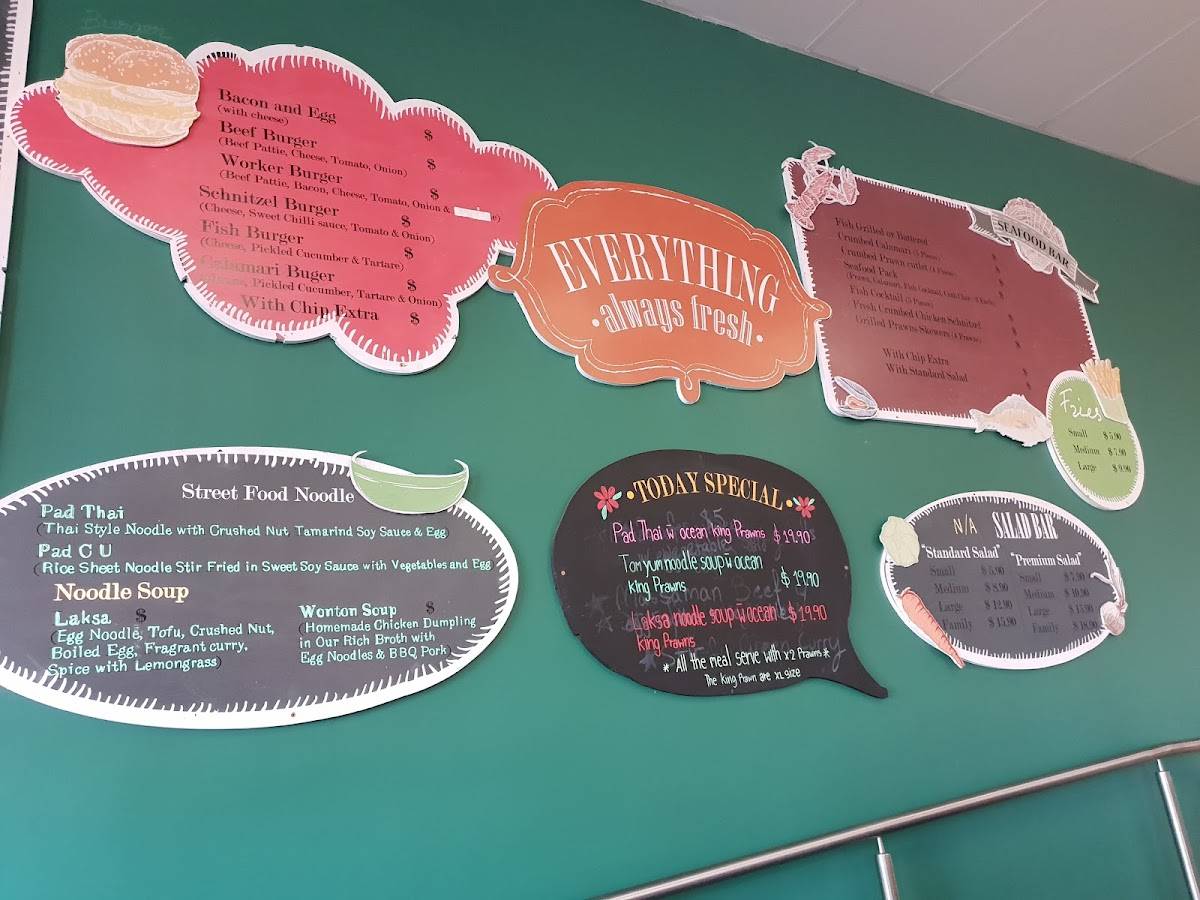 Bacon and Egg
(with cheese) $
Beef Burger
(Beef Pattie, Cheese, Tomato, Onion) $
Worker Burger
(Beef Pattie, Bacon, Cheese, Tomato, Onion & $
Schnitzel Burger
(Cheese, Sweet Chilli sauce, Tomato & Onion) $
Fish Burger
(Cheese, Pickled Cucumber & Tartare) $
Calamari Buger
(Cheese, Pickled Cucumber, Tartare & Onion) $
With Chip Extra $
EVERYTHING
•always fresh•
SEAFOOD BAR
Fish Grilled or Battered
Crumbed Calamari (5 Pieces)
Crumbed Prawn cutlet (4 Pieces)
Seafood Pack
Fish Cocktail (5 Pieces)
Fresh Crumbed Chicken Schnitzel
Grilled Prawns Skewers (4 Prawns)
With Chip Extra
With Standard Salad
Fries
Small $ 5.90
Medium $ 7.90
Large $ 9.90
Street Food Noodle
Pad Thai
(Thai Style Noodle with Crushed Nut Tamarind Soy Sauce & Egg)
Pad C U
(Rice Sheet Noodle Stir Fried in Sweet Soy Sauce with Vegetables and Egg)
Noodle Soup
Laksa $
(Egg Noodle, Tofu, Crushed Nut,
Boiled Egg, Fragrant curry,
Spice with Lemongrass)
Wonton Soup $
(Homemade Chicken Dumpling
in Our Rich Broth with
Egg Noodles & BBQ Pork)
•TODAY SPECIAL•
Pad Thai w ocean king Prawns $19.90
Tom yum noodle soup w ocean
king Prawns $19.90
Laksa noodle soup w ocean $19.90
king Prawns
* All the meal serve with x2 Prawns *
The king Prawn are XL size
N/A SALAD BAR
"Standard Salad"
Small $ 5.90
Medium $ 8.90
Large $ 12.90
Family $ 15.90
"Premium Salad"
Small $ 7.90
Medium $ 10.90
Large $ 15.90
Family $ 18.90